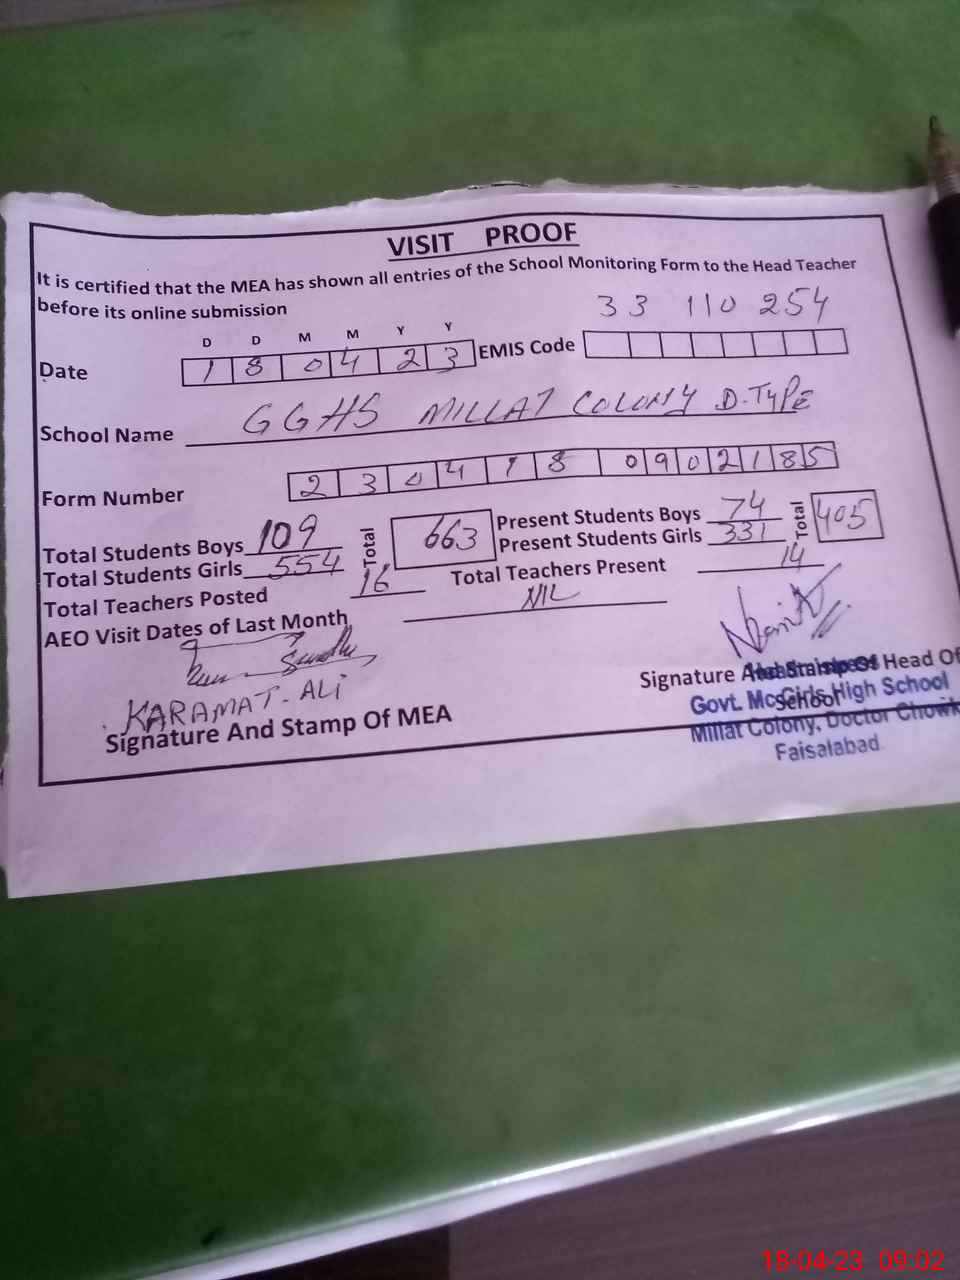 VISIT PROOF
It is certified that the MEA has shown all entries of the School Monitoring Form to the Head Teacher
before its online submission
33 110 254
D D M M Y Y
Date 1 8 0 4 2 3 EMIS Code
School Name GGHS MILLAT COLONY D.TYPE
Form Number 2 3 0 4 1 8 0 9 0 2 1 8 5
Total Students Boys 109 Total 663 Present Students Boys 74 Total 405
Total Students Girls 554 Present Students Girls 331
Total Teachers Posted 16 Total Teachers Present 14
AEO Visit Dates of Last Month NIL
KARAMAT-ALi
Signature And Stamp Of MEA
Signature And Stamp Of Head Of
School
Govt. Mc Girls High School
Millat Colony, Doctor Chowk
Faisalabad
18-04-23 09:02